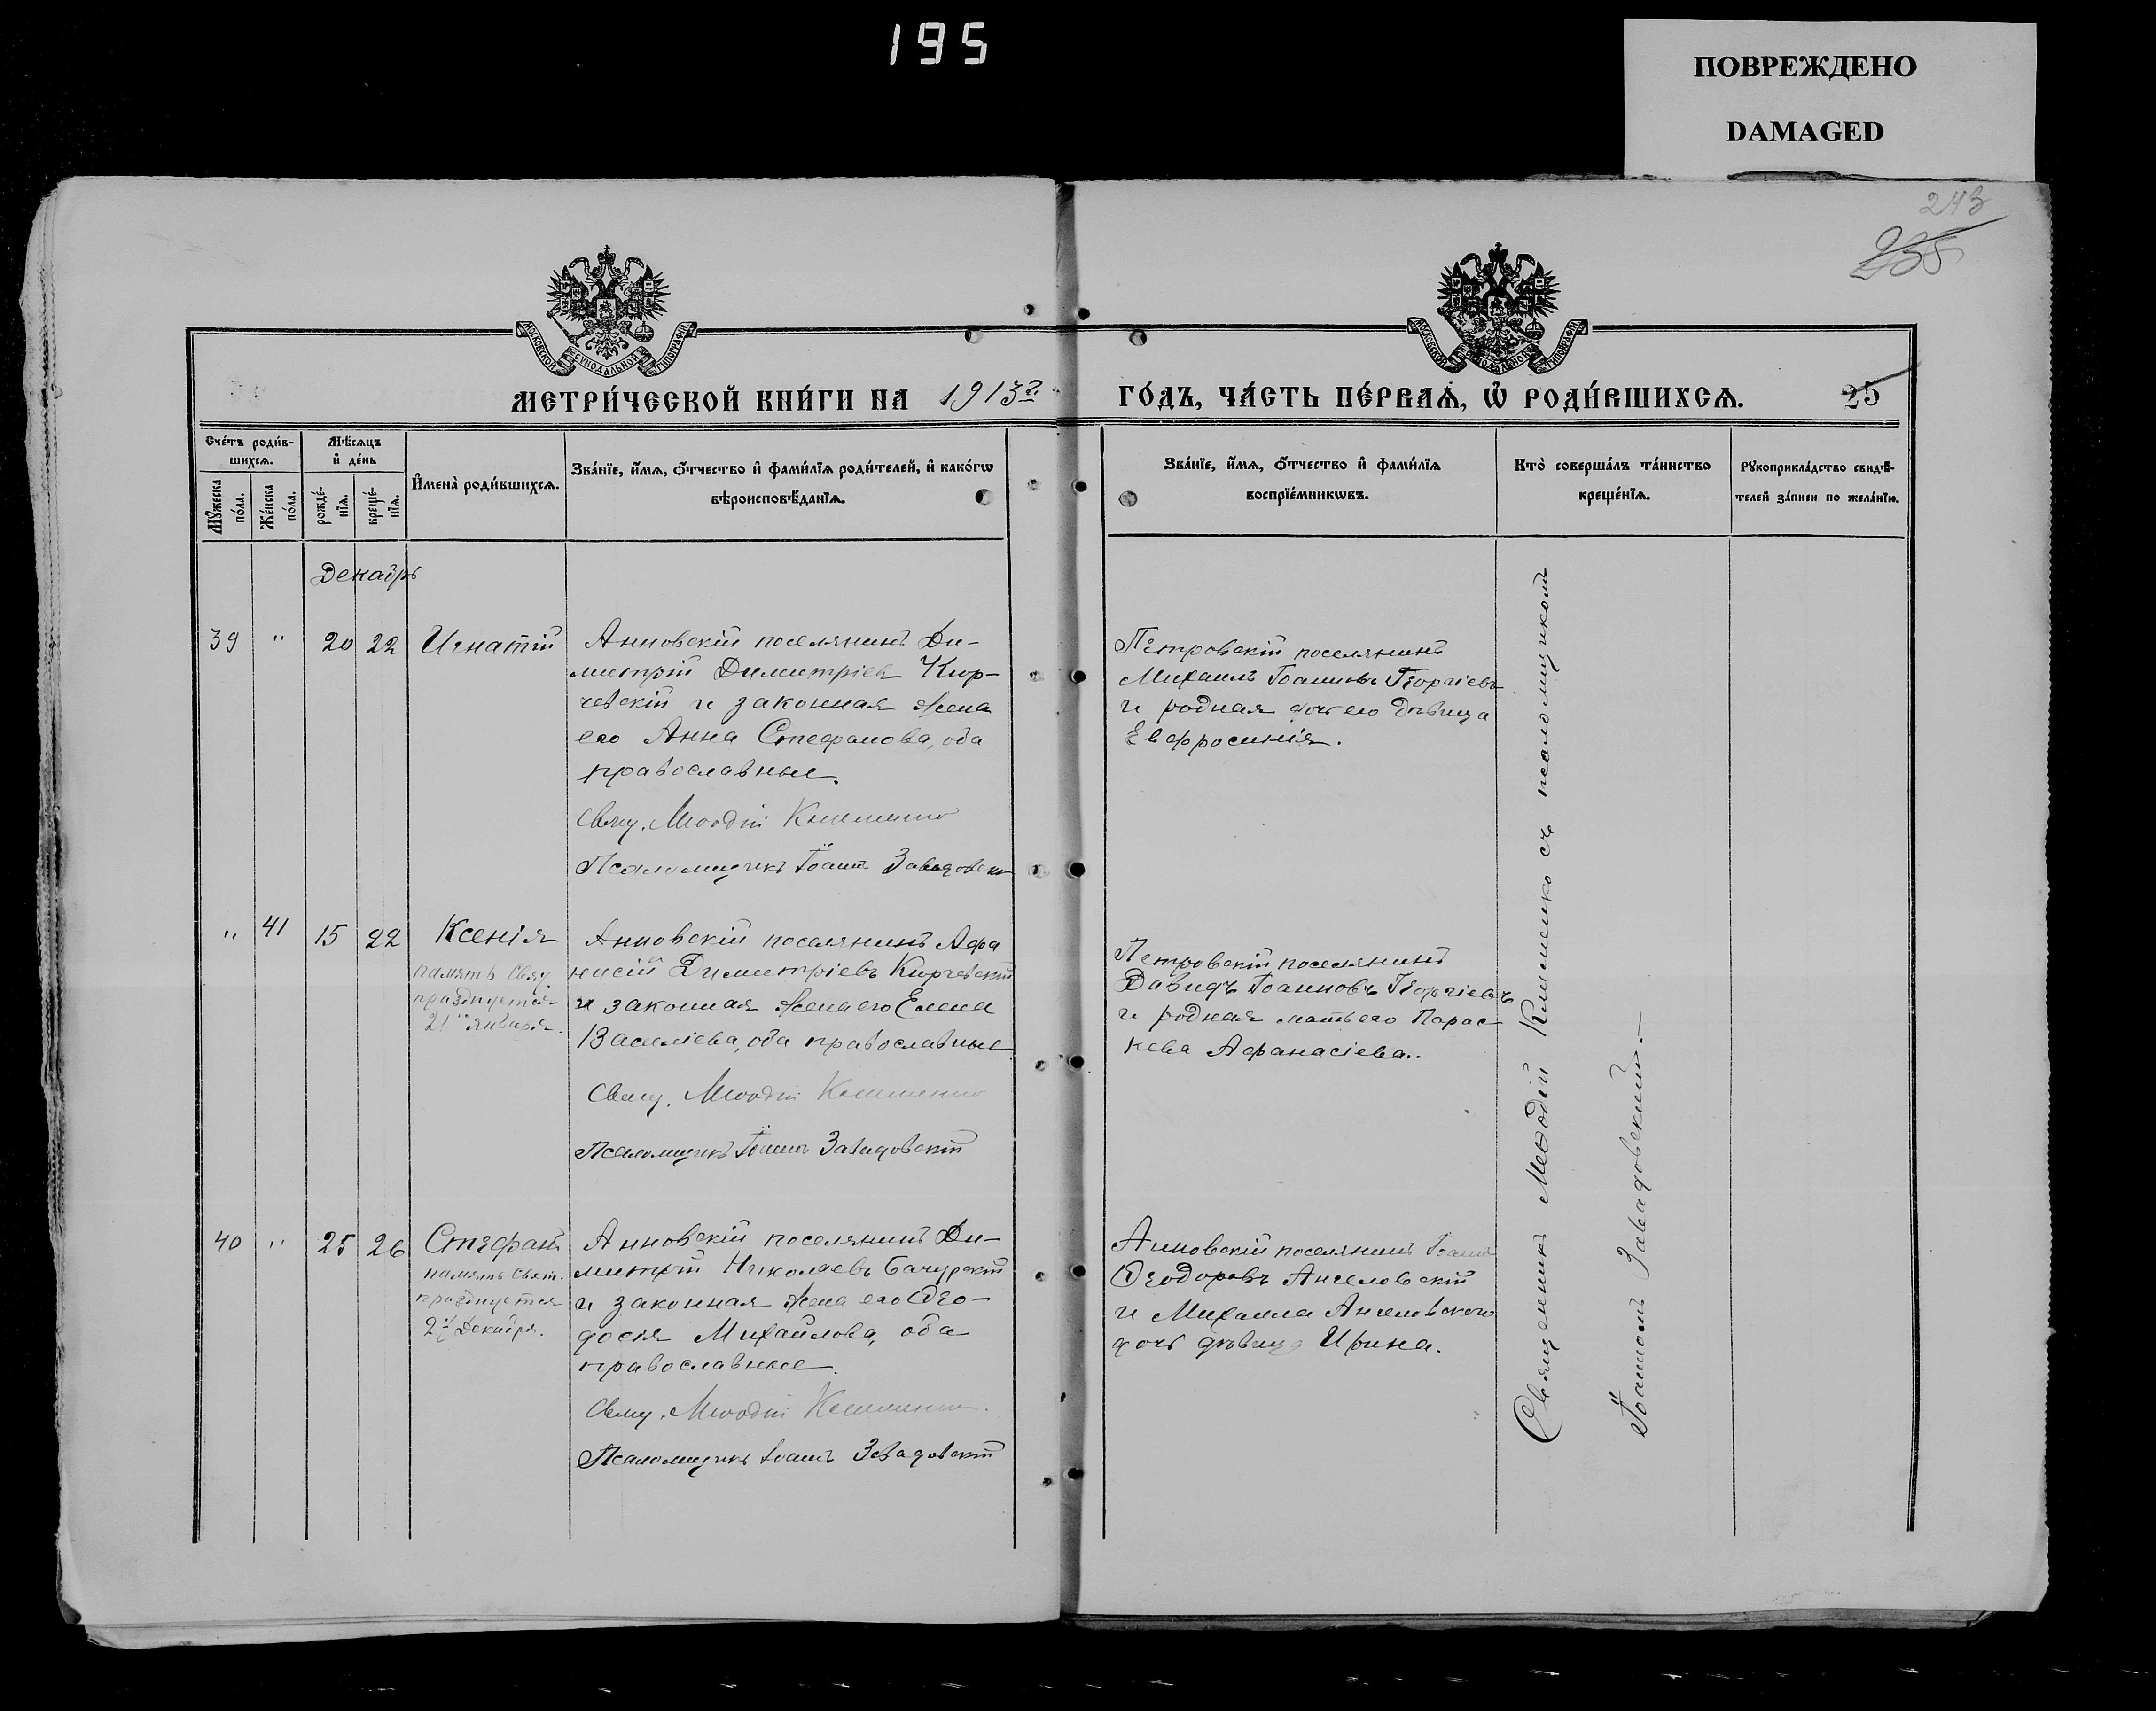 195
ПОВРЕЖДЕНО
DAMAGED
243
235
МОСКОВСКОЙ СѴНОДАЛЬНОЙ ТИПОГРАФІИ
МОСКОВСКОЙ СѴНОДАЛЬНОЙ ТИПОГРАФІИ
МЕТРИ́ЧЕСКОЙ КНИ́ГИ НА 1913 г.
ГО́ДЪ, ЧА́СТЬ ПЕ́РВАѦ, Ѡ҆ РОДИ́ВШИХСѦ.
25
Сче́тъ роди́в-
шихсѧ.
Мѣ́сѧцъ
и҆ де́нь
Мꙋ́жеска
по́ла.
Же́нска
по́ла.
рожде́-
нїѧ.
креще́-
нїѧ.
И҆мена̀ роди́вшихсѧ.
Зва́нїе, и҆́мѧ, ѻ҆́тчество и҆ фами́лїѧ роди́телей, и҆ како́гѡ
вѣроисповѣ́данїѧ.
Зва́нїе, и҆́мѧ, ѻ҆́тчество и҆ фами́лїѧ
воспрїе́мникѡвъ.
Кто̀ соверша́лъ та́инство
креще́нїѧ.
Рꙋкоприкла́дство свидѣ́-
телей за́писи по жела́нїю.
Декабрь
39 " 20 22 Игнатій
Анновскій поселянинъ Ди-
митрій Димитріевъ Кюр-
чевскій и законная жена
его Анна Стефанова, оба
православные.
Свящ. Меѳодій Клименко
Псаломщикъ Іоаннъ Завадовскій
Петровскій поселянинъ
Михаилъ Іоанновъ Георгіевъ
и родная дочь его дѣвица
Евфросинія.
" 41 15 22 Ксенія
память свят.
празднуется
21 января.
Анновскій поселянинъ Афа
насій Димитріевъ Кюрчевскій
и законная жена его Елена
Василіева, оба православные
Свящ. Меѳодій Клименко
Псаломщикъ Іоаннъ Завадовскій
Петровскій поселянинъ
Давидъ Іоанновъ Георгіевъ
и родная мать его Парас-
кева Афанасіева.
40 " 25 26 Стефанъ
память свят.
празднуется
Декабря.
Анновскій поселянинъ Ди-
митрій Николаевъ Бачурскій
и законная жена его Ѳео-
досія Михайлова, оба
православные.
Свящ. Меѳодій Клименко.
Псаломщикъ Іоаннъ Завадовскій
Анновскій поселянинъ Іоаннъ
Ѳеодоровъ Ангеловскій
и Михаила Ангеловскаго
дочь дѣвица Ирина.
Священникъ Меѳодій Клименко съ псаломщикомъ
Іоанномъ Завадовскимъ.